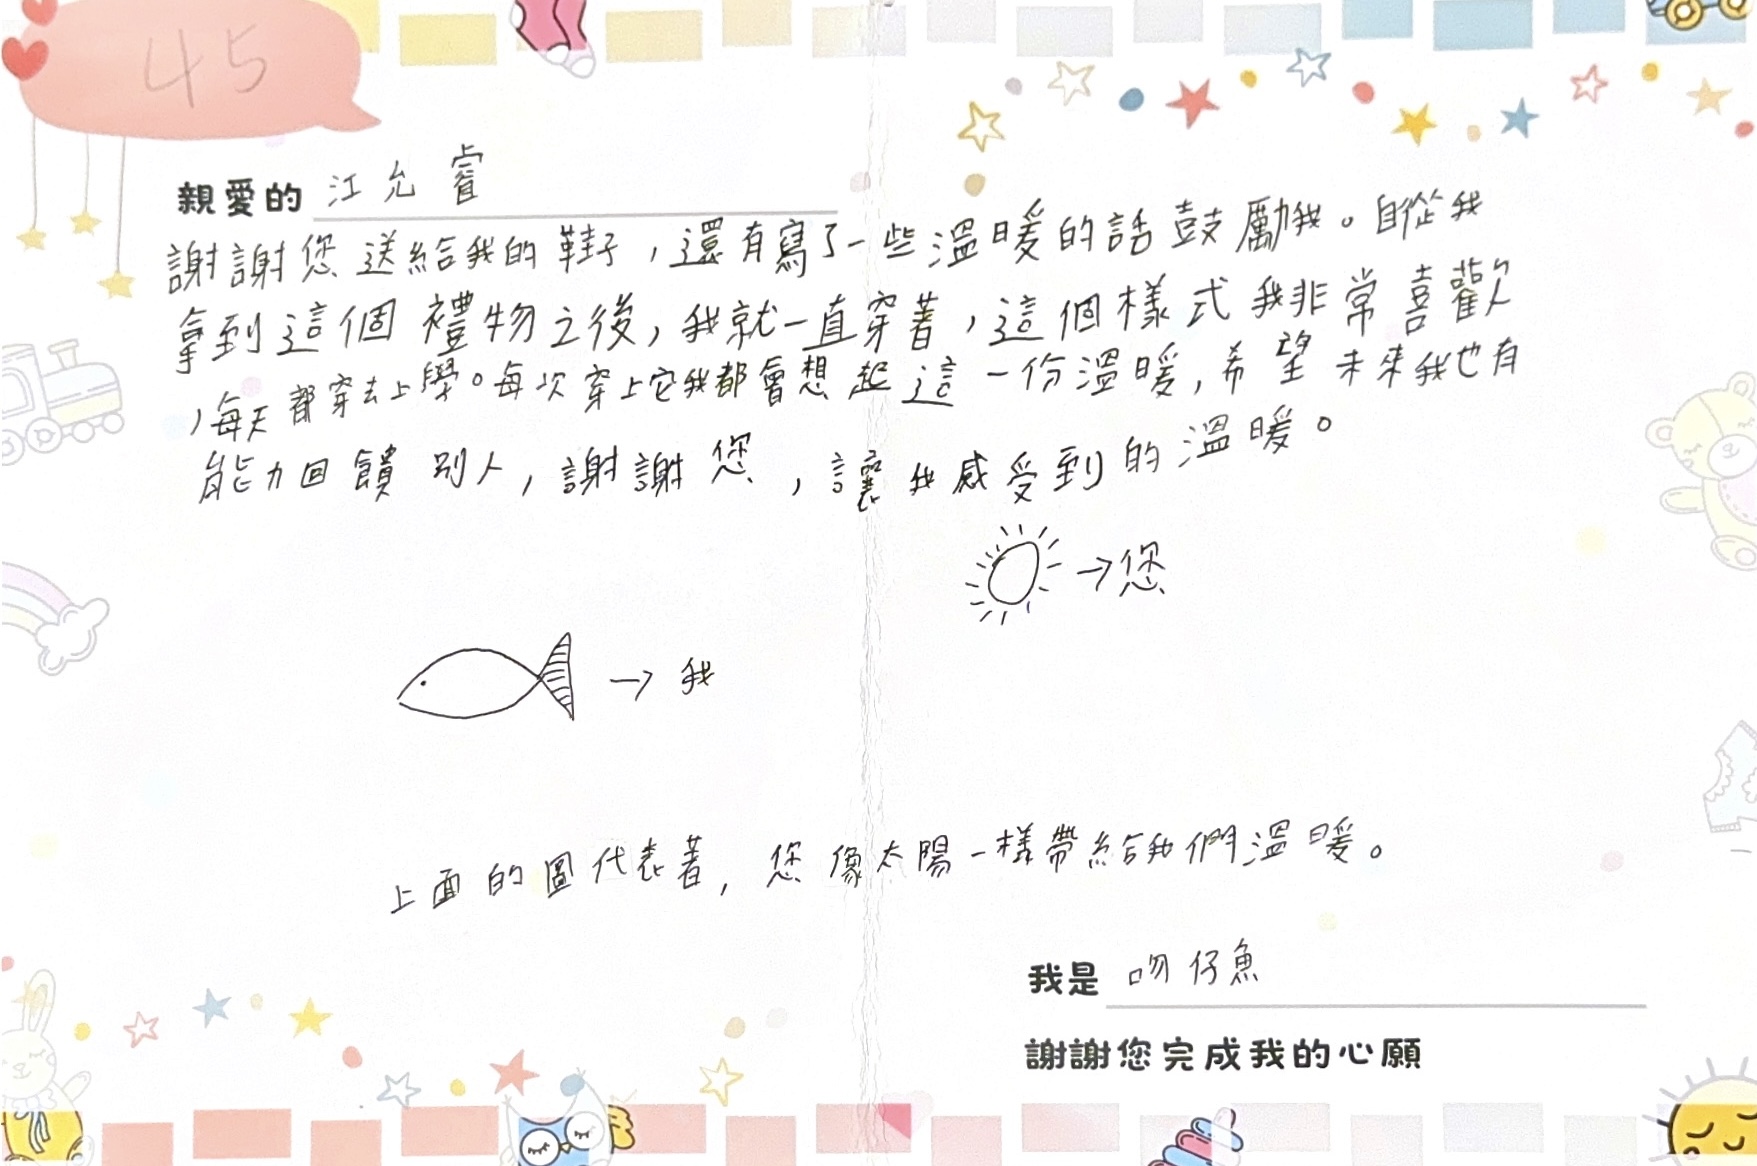 45
親愛的 江允睿
謝謝您送給我的鞋子，還有寫了一些溫暖的話鼓勵我。自從我
拿到這個禮物之後，我就一直穿著，這個樣式我非常喜歡
，每天都穿去上學。每次穿上它我都會想起這一份溫暖，希望未來我也有
能力回饋別人，謝謝您，讓我感受到的溫暖。
→您
→ 我
上面的圖代表著，您像太陽一樣帶給我們溫暖。
我是 吻仔魚
謝謝您完成我的心願